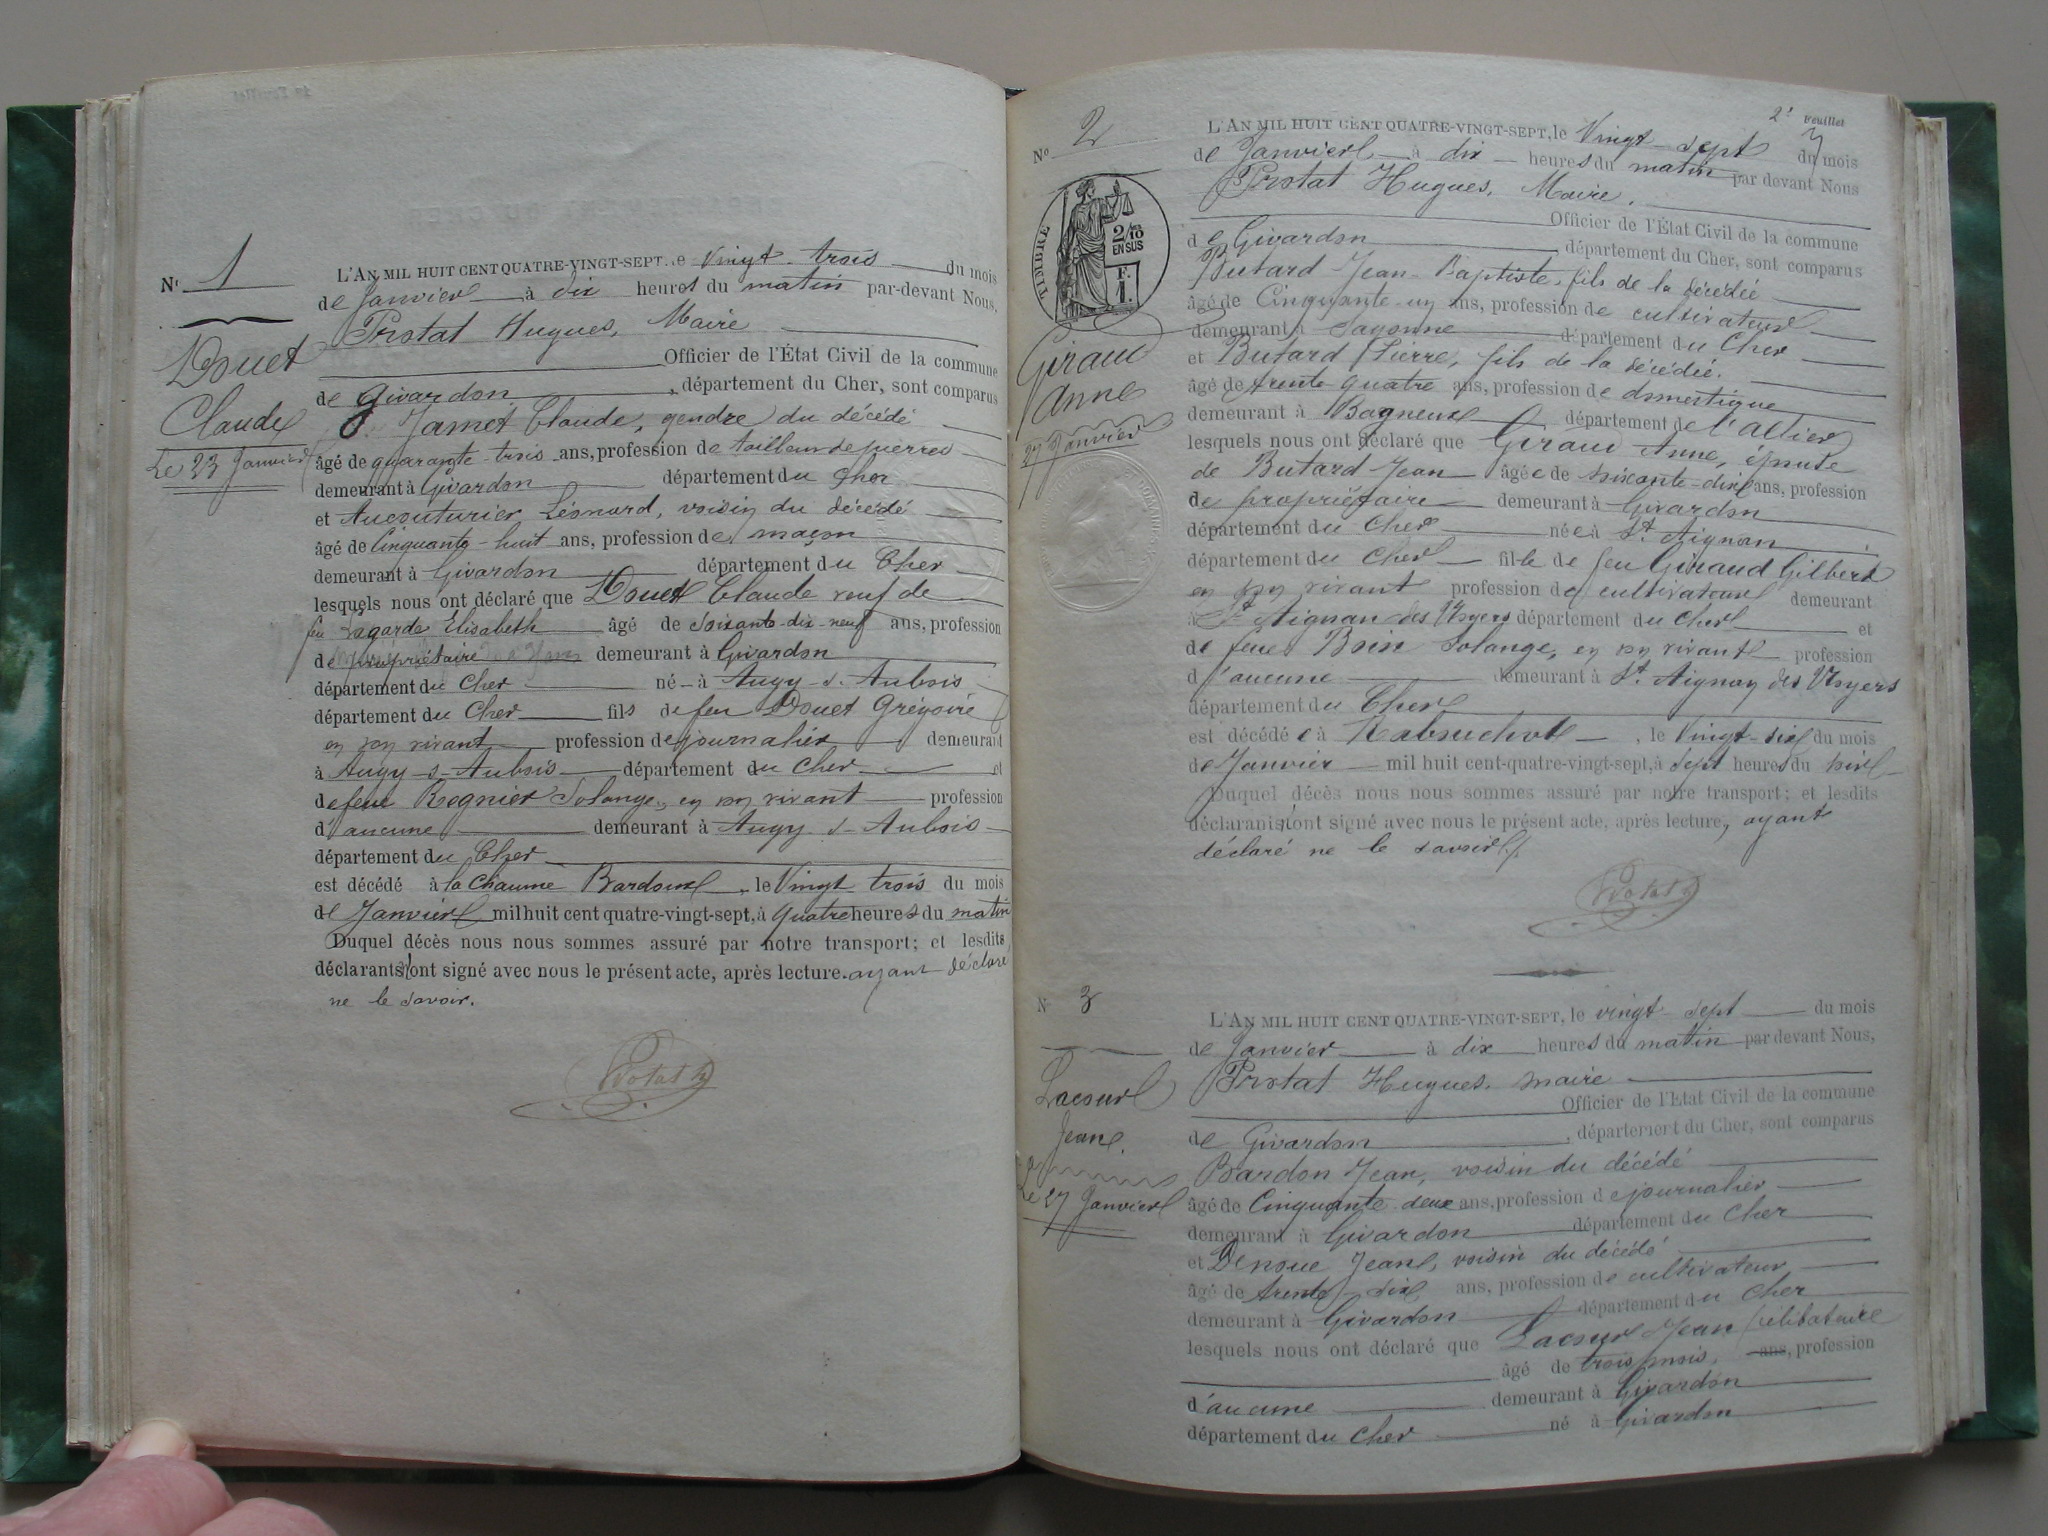 Nº 1
Douet
Claude
Le 23 Janvier
L'AN MIL HUIT CENT QUATRE-VINGT-SEPT, le vingt-trois du mois
de Janvier à dix heures du matin par-devant Nous,
Protat Hugues, Maire
Officier de l'État Civil de la commune
de Givardon, département du Cher, sont comparus
Jamet Claude, gendre du décédé
âgé de quarante-trois ans, profession de tailleur de pierres
demeurant à Givardon département du Cher
et Aucouturier Léonard, voisin du décédé
âgé de Cinquante-huit ans, profession de maçon
demeurant à Givardon département du Cher
lesquels nous ont déclaré que Douet Claude veuf de
feu Lagarde Elisabeth âgé de soixante-dix-neuf ans, profession
de propriétaire demeurant à Givardon
département du Cher né à Augy-s-Aubois
département du Cher fils de feu Douet Grégoire
en son vivant profession de journalier demeurant
à Augy-s-Aubois département du Cher et
de feue Regnier Solange, en son vivant profession
d'aucune demeurant à Augy-s-Aubois
département du Cher
est décédé à la Chaume Bardoux, le Vingt-trois du mois
de Janvier mil huit cent quatre-vingt-sept, à quatre heures du matin
Duquel décès nous nous sommes assuré par notre transport; et lesdits
déclarants n'ont signé avec nous le présent acte, après lecture. ayant déclaré
ne le savoir.
Protat h
2e Feuillet
Nº 2
TIMBRE
2/10
EN SUS
F.
1.
Giraud
Anne
27 Janvier
L'AN MIL HUIT CENT QUATRE-VINGT-SEPT, le Vingt-sept du mois
de Janvier à dix heures du matin par devant Nous
Protat Hugues, Maire,
Officier de l'État Civil de la commune
de Givardon département du Cher, sont comparus
Butard Jean-Baptiste, fils de la décédée
âgé de Cinquante-un ans, profession de cultivateur
demeurant à Sagonne département du Cher
et Butard Pierre, fils de la décédée,
âgé de trente-quatre ans, profession de domestique
demeurant à Bagneux département de l'Allier
lesquels nous ont déclaré que Giraud Anne, épouse
de Butard Jean âgée de soixante-dix ans, profession
de propriétaire demeurant à Givardon
département du Cher née à St Aignan
département du Cher fille de feu Giraud Gilbert
en son vivant profession de cultivateur demeurant
à St Aignan des Noyers département du Cher et
de feue Boire Solange, en son vivant profession
d'aucune demeurant à St Aignan des Noyers
département du Cher
est décédée à, le Vingt-six du mois
de Janvier mil huit cent-quatre-vingt-sept, à sept heures du soir
Duquel décès nous nous sommes assuré par notre transport; et lesdits
déclarants n'ont signé avec nous le présent acte, après lecture, ayant
déclaré ne le savoir
Protat h
N 3
Lacour
Jean.
Le 27 Janvier
L'AN MIL HUIT CENT QUATRE-VINGT-SEPT, le vingt-sept du mois
de Janvier à dix heures du matin par devant Nous,
Protat Hugues, maire
Officier de l'État Civil de la commune
de Givardon, département du Cher, sont comparus
Bardon Jean, voisin du décédé
âgé de Cinquante-deux ans, profession de journalier
demeurant à Givardon département du Cher
et Jean, voisin du décédé
âgé de trente-six ans, profession de cultivateur
demeurant à Givardon département du Cher
lesquels nous ont déclaré que Lacour Jean célibataire
âgé de trois mois, ans, profession
d'aucune demeurant à Givardon
département du Cher né à Givardon